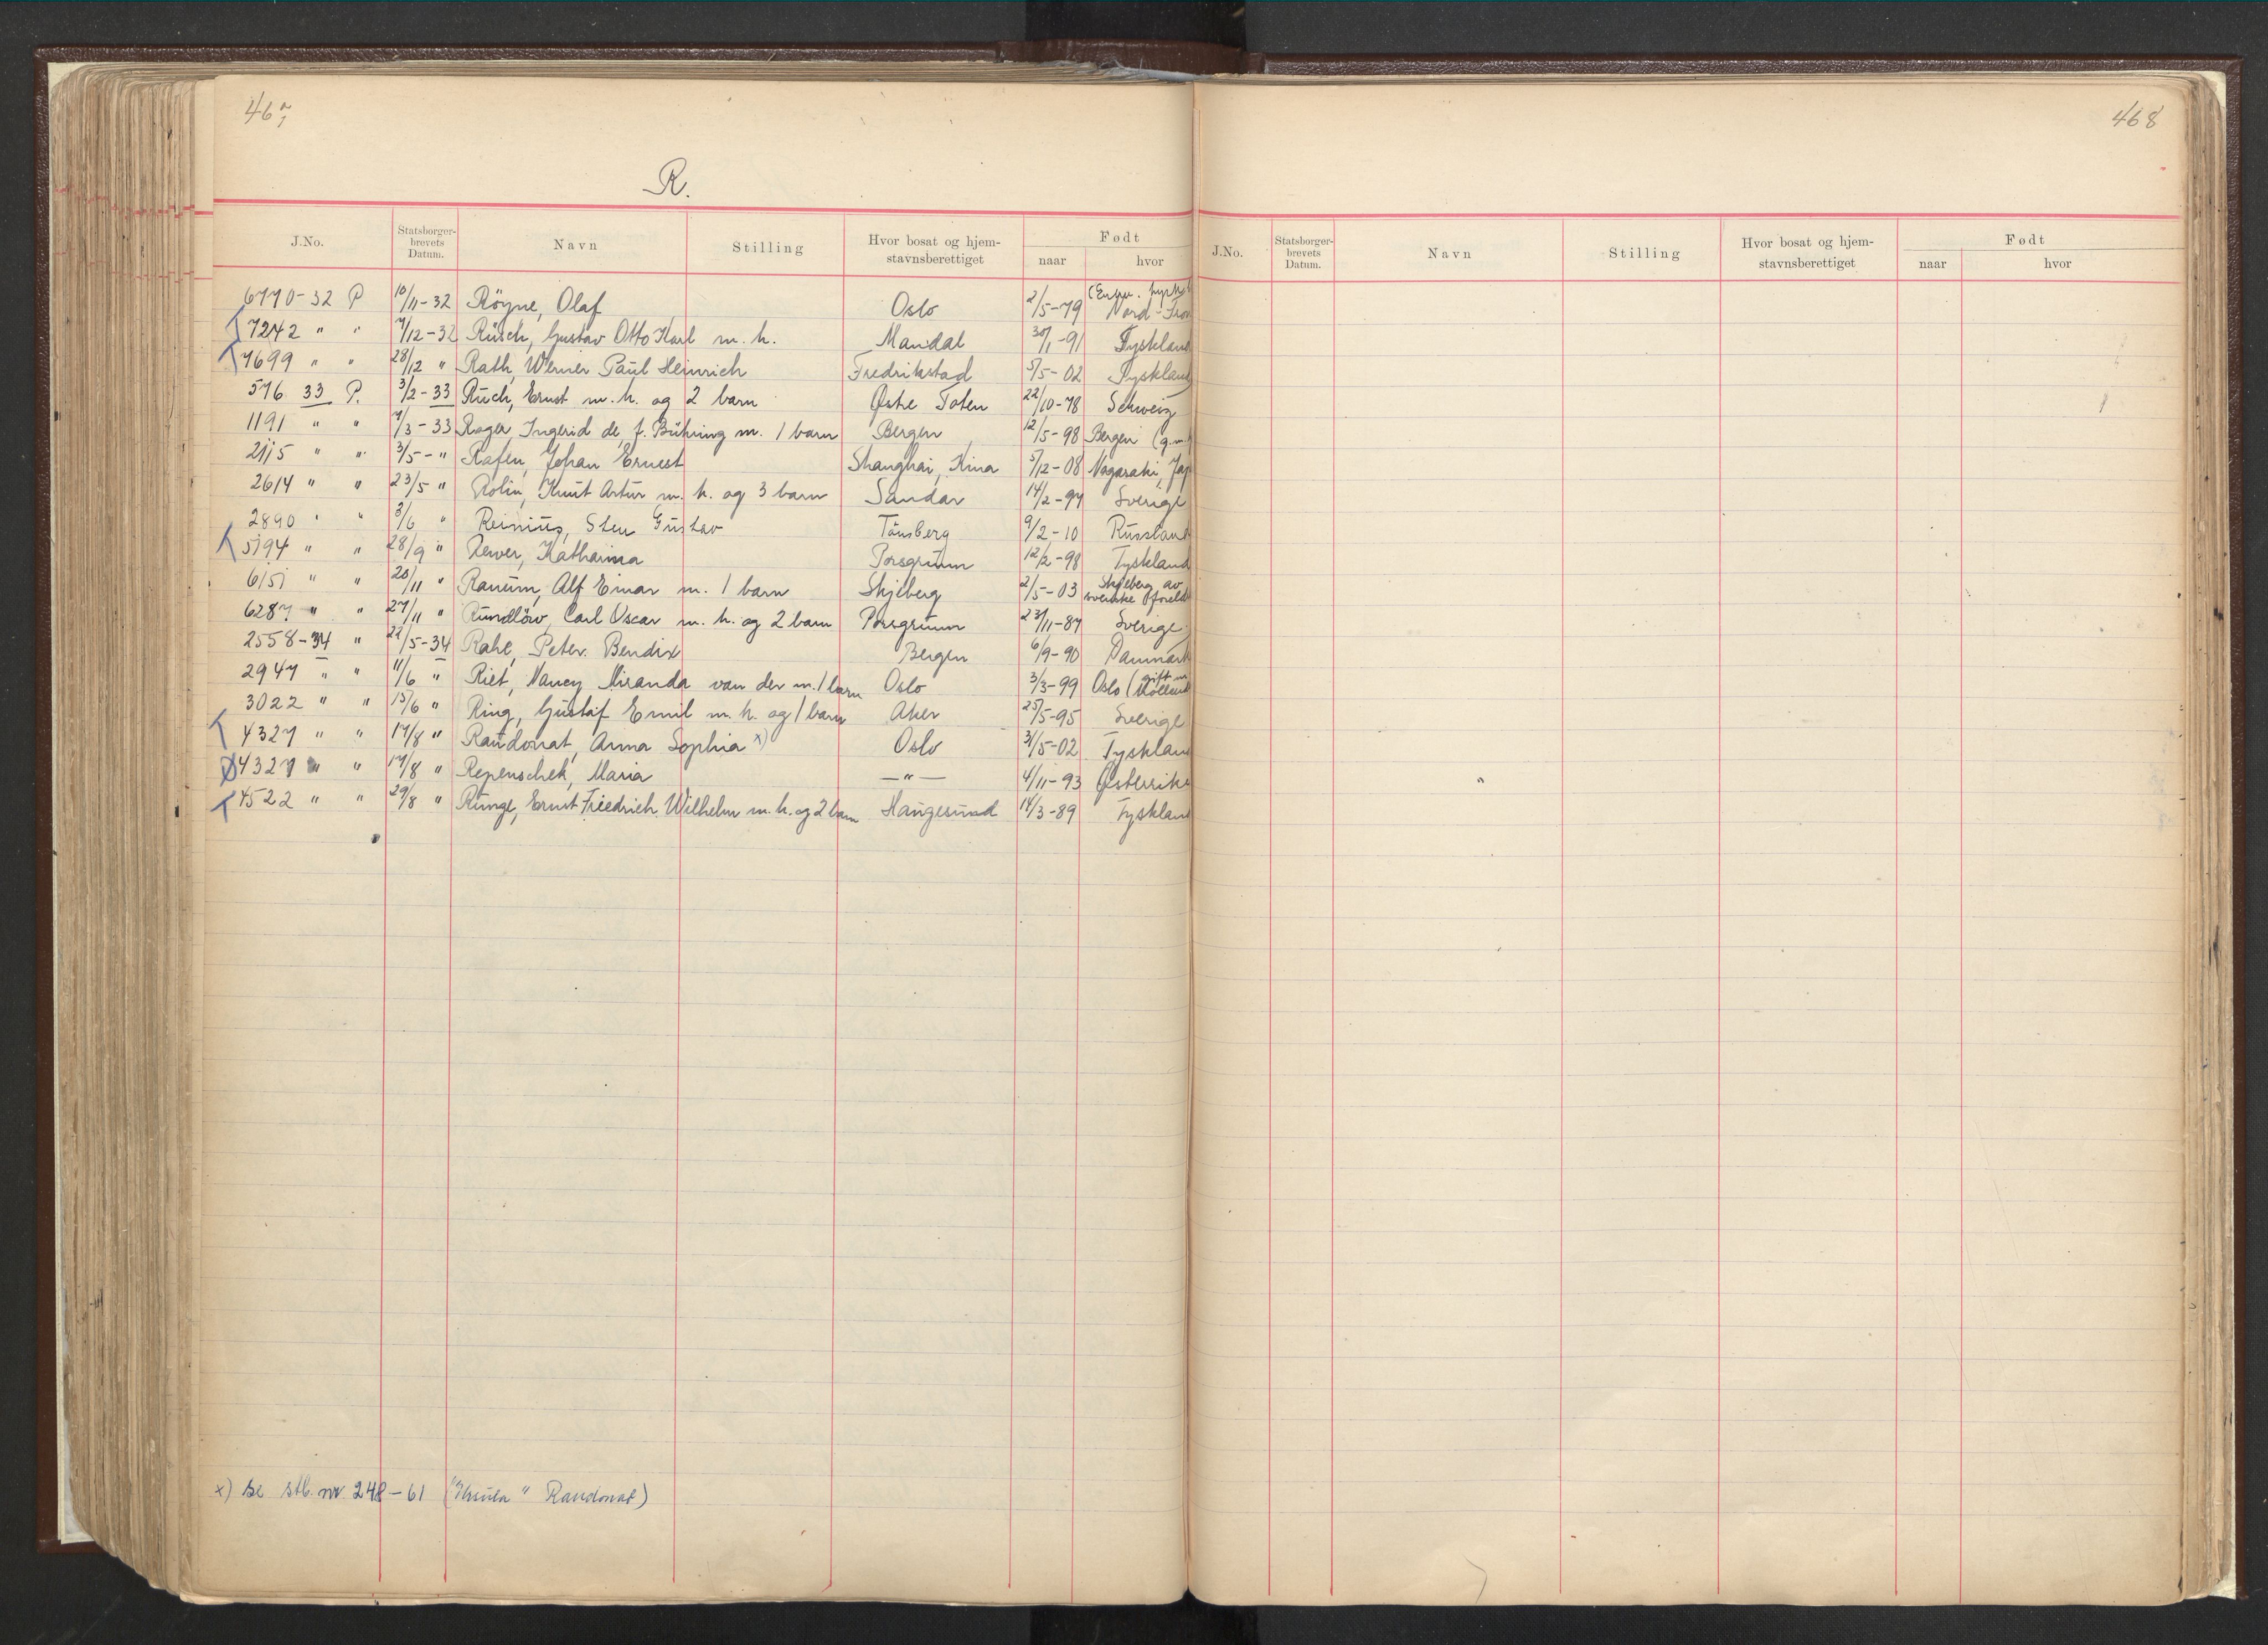 467
R.
J.No. Statsborger-brevets Datum. Navn Stilling Hvor bosat og hjem-stavnsberettiget Født naar hvor
6770-32 P 10/11-32 Röyne, Olaf Oslo 2/5-79 Nord-Fron
7242 " " 7/12-32 Rüsch, Gustav Otto Karl m. h. Mandal 30/1-91 Tyskland
7699 " " 28/12 " Rath, Werner Paul Heinrich Fredrikstad 5/5-02 Tyskland
576 33 P. 3/2-33 Ruch, Ernst m. h. og 2 barn Østre Toten 22/10-78 Schweiz
1191 " " 7/3-33 Roger Ingerid de, f. Bühring m. 1 barn Bergen 12/5-98 Bergen (g.m.
2115 " " 3/5-" Rafen, Johan Ernest Shanghai, Kina 5/12-08 Nagasaki, Jap
2614 " " 23/5 " Rolin, Knut Artur m. h. og 3 barn Sandar 14/2-97 Sverige
2890 " " 3/6 " Reinius, Sten Gustav Tönsberg 9/2-10 Russland
5194 " " 28/9 " Rewer, Katharina Porsgrunn 12/2-98 Tyskland
6151 " " 20/11 " Raneum, Alf Einar m. 1 barn Skjeberg 2/5-03 Skjeberg av svenske foreld
6287 " " 27/11 " Rundlöw, Carl Oscar m. h. og 2 barn Porsgrunn 23/11-87 Sverige
2558-34 " 22/5-34 Rahe, Peter Bendix Bergen 6/9-90 Danmark
2947 " " 11/6 " Riet, Nancy Miranda van der m. 1 barn Oslo 3/3-99 Oslo (gift m Holland
3022 " " 15/6 " Ring, Gustaf Emil m. h. og 1 barn Aker 25/5-95 Sverige
4327 " " 17/8 " Raudonat, Anna Sophia x) Oslo 31/5-02 Tyskland
4327 " " 17/8 " Repenschek, Maria — " — 4/11-93 Østerrike
4522 " " 29/8 " Runge, Ernst Friedrich Wilhelm m. h. og 2 barn Haugesund 14/3-89 Tyskland
x) se stb. nr. 248-61 ( " Raudonat)
468
J.No. Statsborger-brevets Datum. Navn Stilling Hvor bosat og hjem-stavnsberettiget Født naar hvor